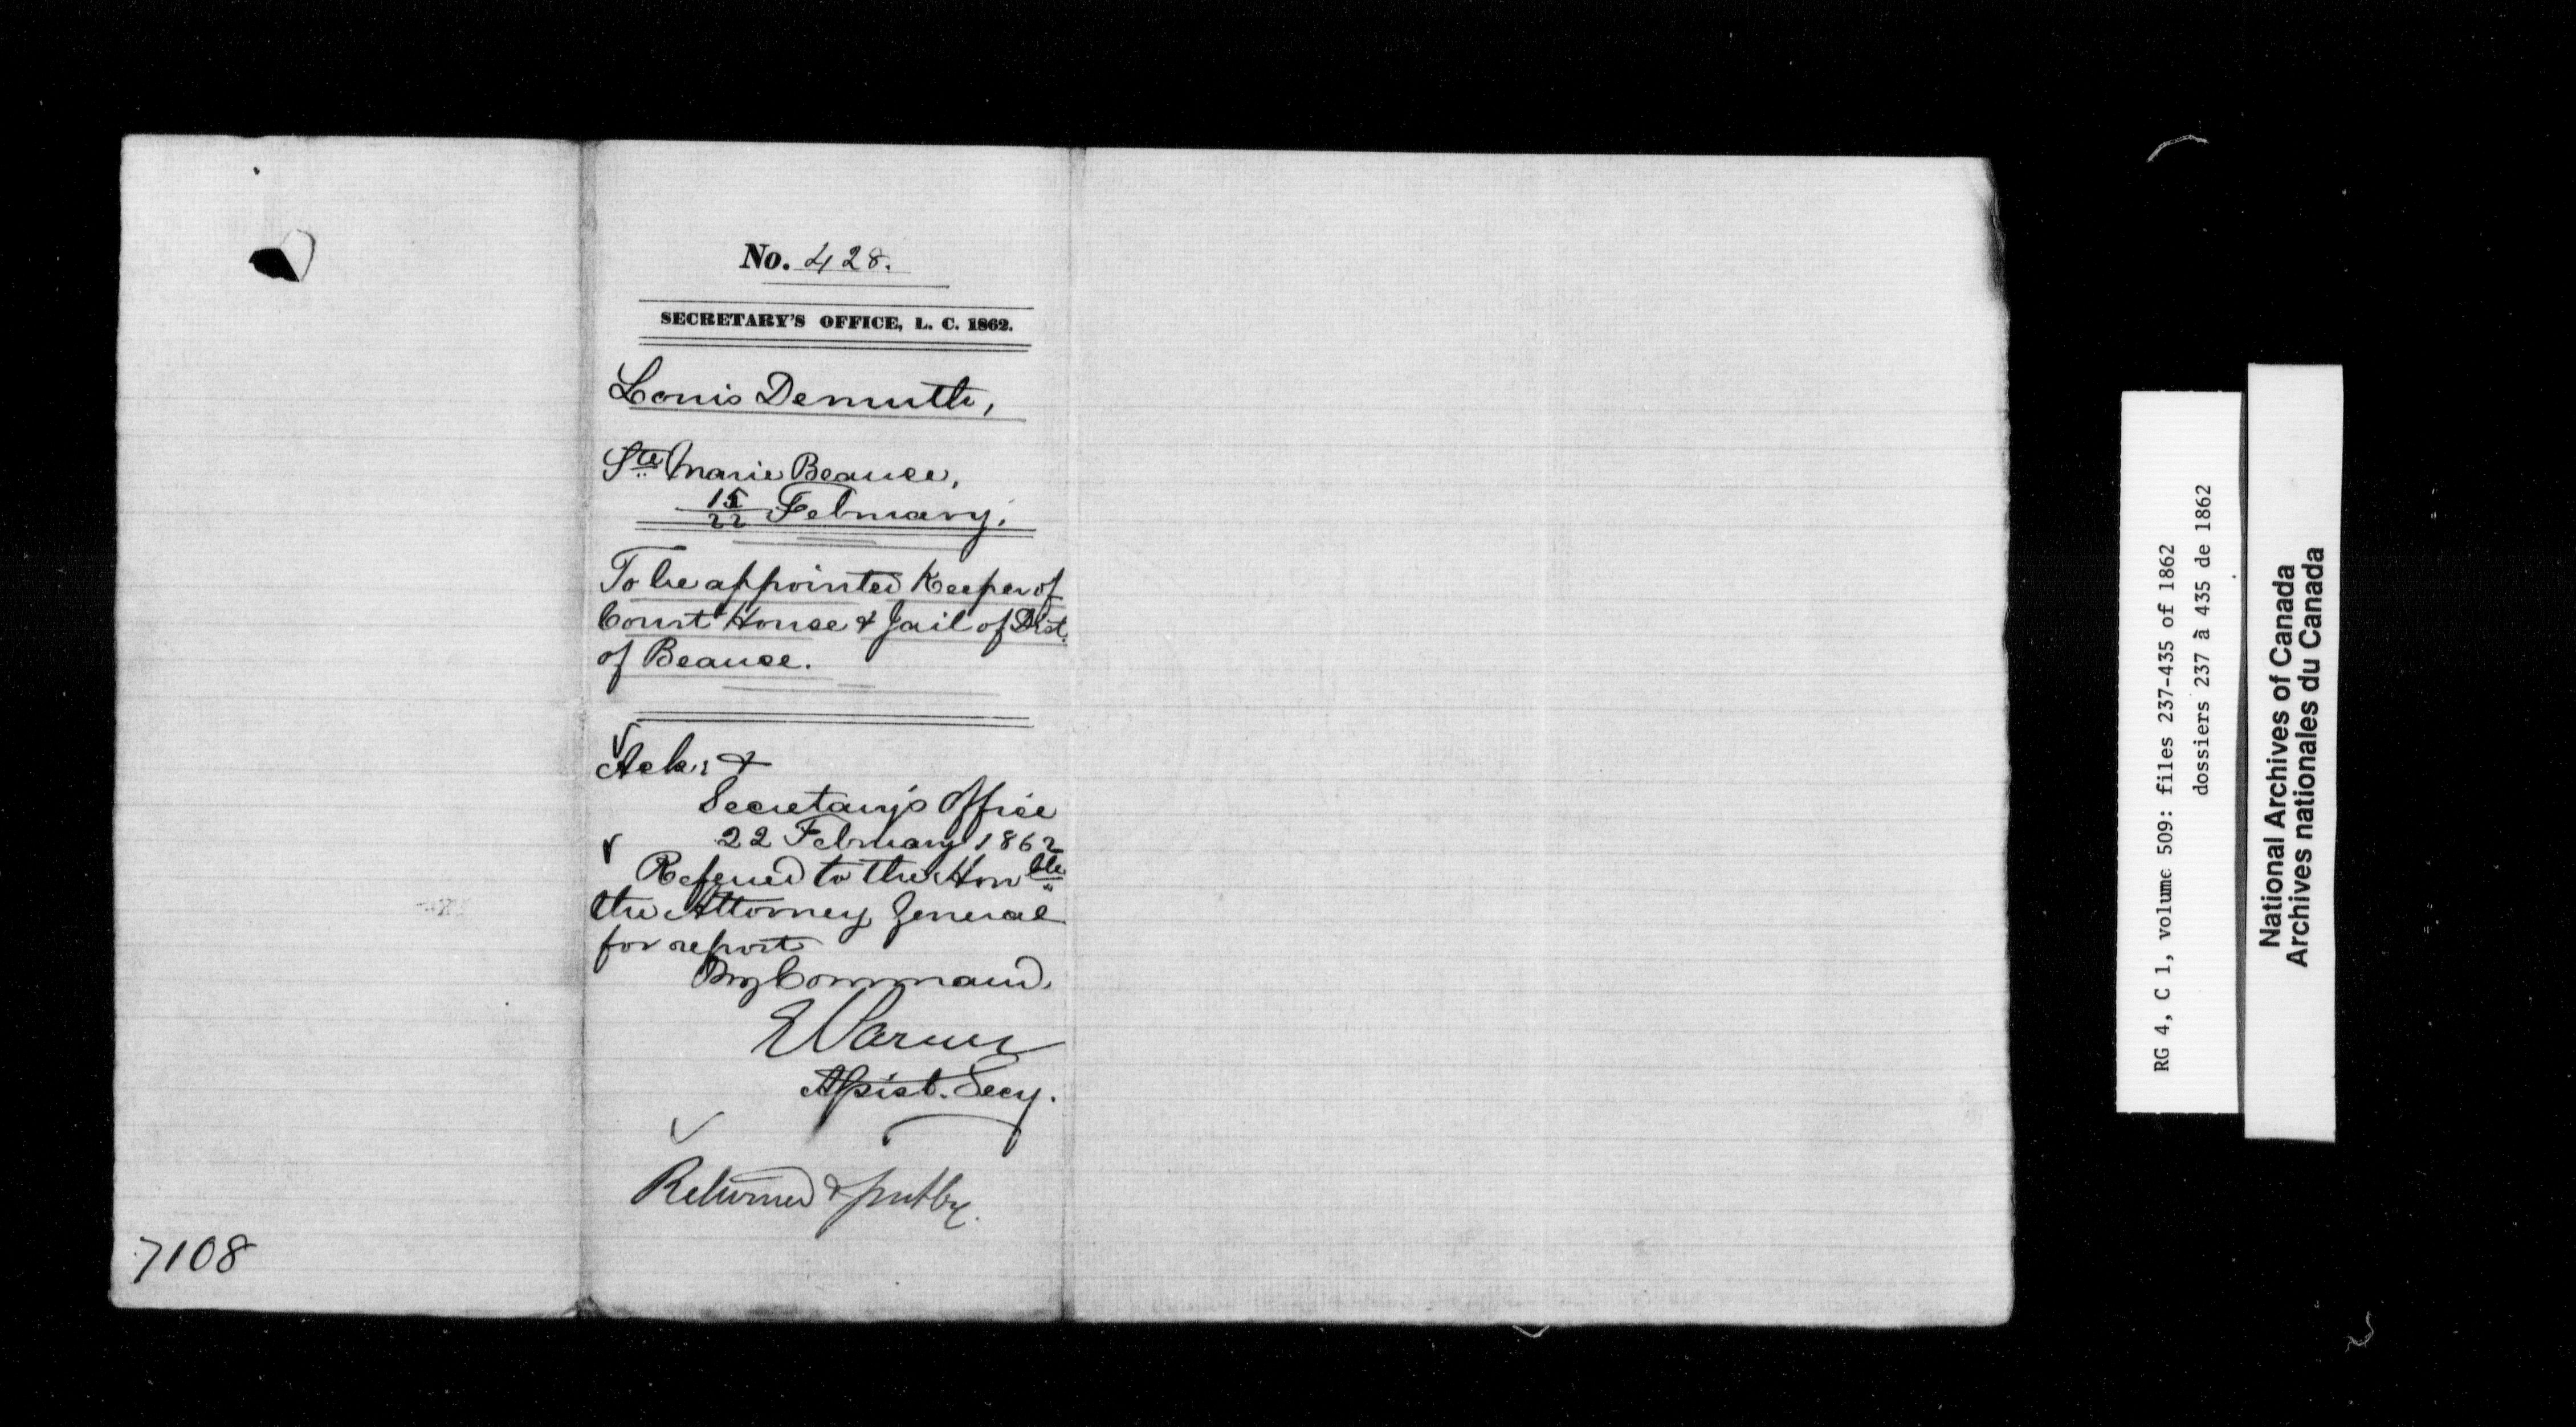 No. 428.
SECRETARY'S OFFICE, L. C. 1862.
Louis Demuth,
Ste Marie Beauce,
15/22 February.
To be appointed Keeper of
Court House & Jail of Dist.
of Beauce.
Ack: &
Secretary's Office
22 February 1862
Referred to the Honble
the Attorney General
for report
By Command,
E Parent
Assist. Secy.
Returned & put by.
7108
RG 4, C 1, volume 509: files 237-435 of 1862
dossiers 237 à 435 de 1862
National Archives of Canada
Archives nationales du Canada